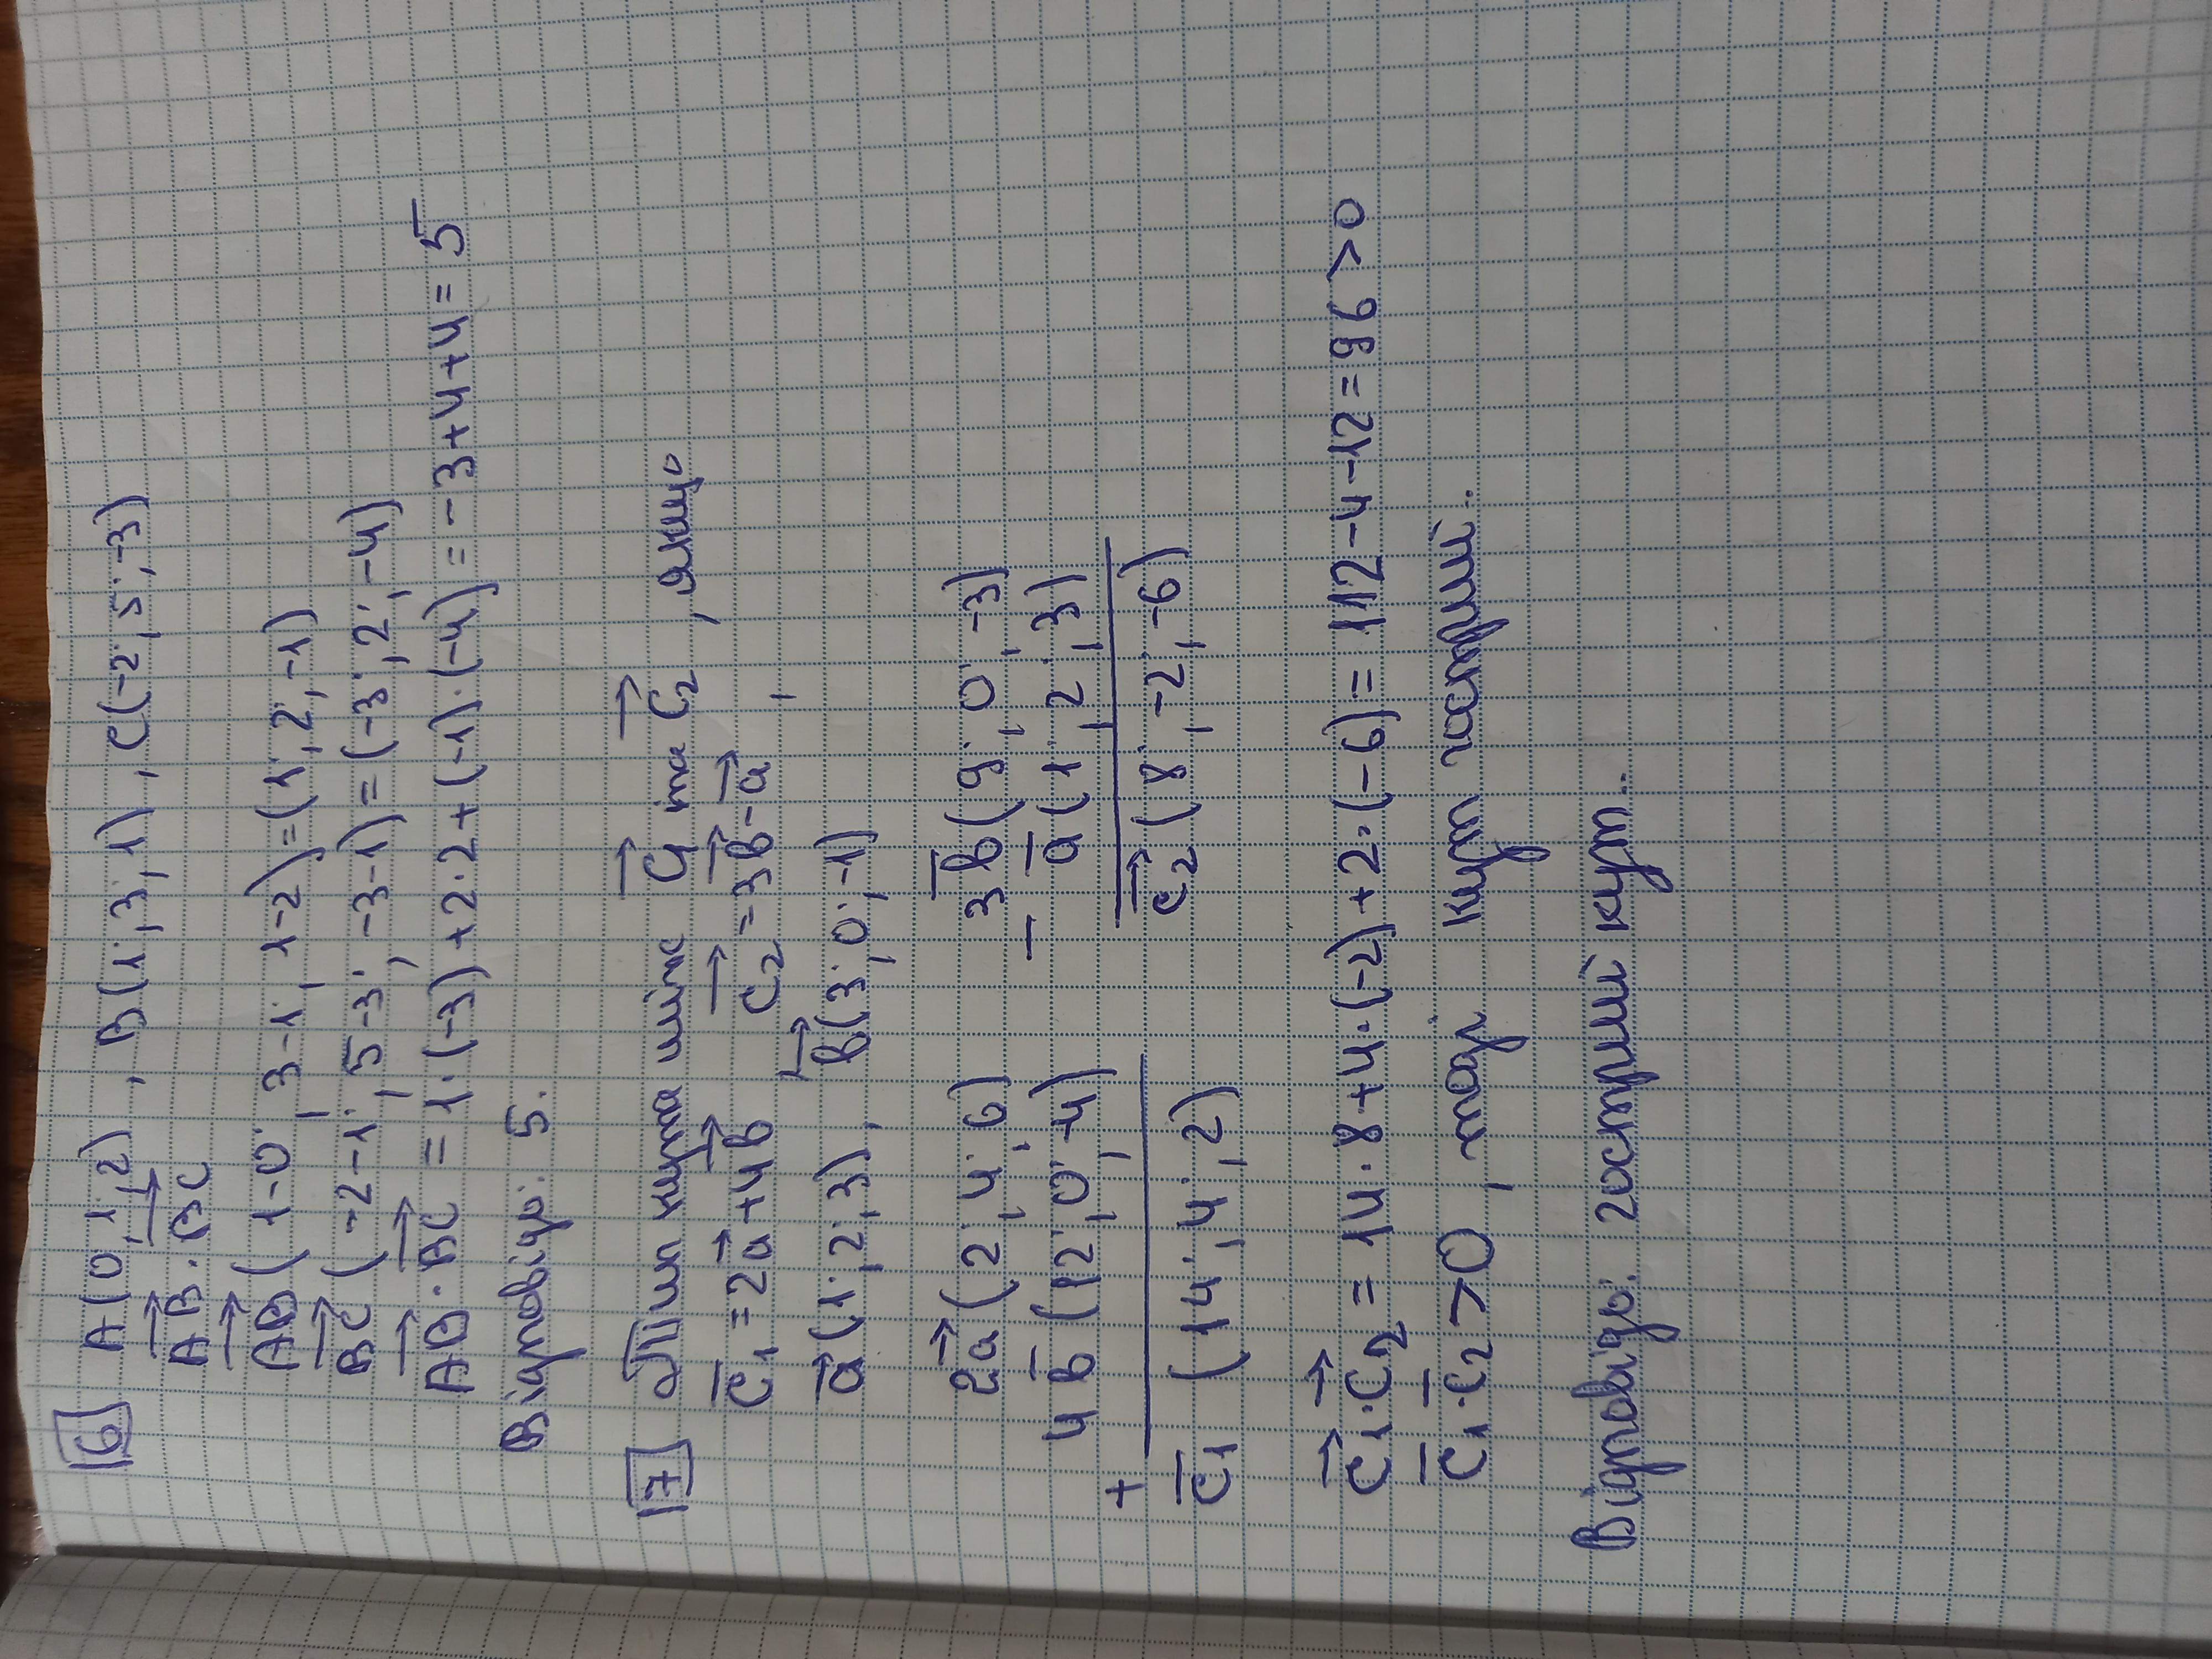 6 A(0;1;2), B(1;3;1), C(-2;5;-3)
AB · BC
AB(1-0; 3-1; 1-2)=(1;2;-1)
BC(-2-1; 5-3; -3-1)=(-3;2;-4)
AB·BC = 1·(-3)+2·2+(-1)·(-4)=-3+4+4=5
Відповідь: 5.
7 Тип кута між c₁ та c₂, якщо
c₁=2a+4b c₂=3b-a,
a(1;2;3), b(3;0;-1)
2a(2;4;6) 3b(9;0;-3)
+ 4b(12;0;-4) - a(1;2;3)
c₁(14;4;2) c₂(8;-2;-6)
c₁·c₂=14·8+4·(-2)+2·(-6)=112-4-12=96>0
c₁·c₂>0, тоді кут гострий.
Відповідь: гострий кут.